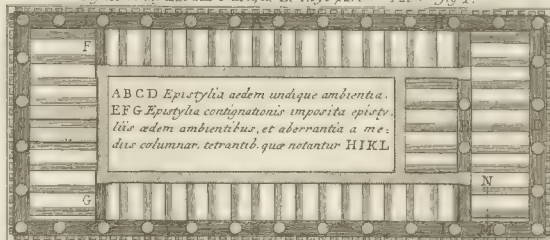 F
ABCD Epistylia aedem undique ambientia.
EFG Epistylia contignationis imposita episty-
liis ædem ambientibus, et aberrantia a me-
diis columnar. tetrantib. quæ notantur HIKL
N
G
M